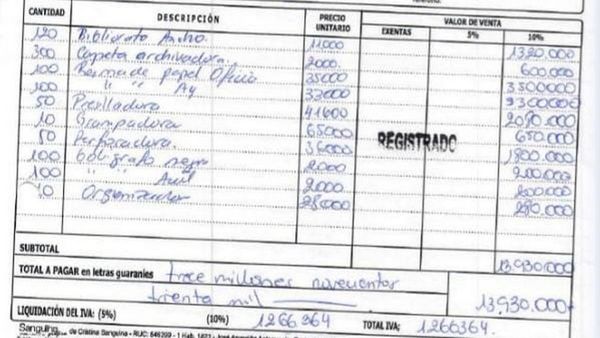 CANTIDAD DESCRIPCIÓN PRECIO UNITARIO VALOR DE VENTA
EXENTAS 5% 10%
120 Bibliorato Ancho. 11000 1320.000
300 Carpeta archivadora. 2000. 600.000
100 Resma de papel Oficio 35000 3500000
100 " " A4 33000 3300000
50 Presilladora 41600 2080.000
10 Grampadora 65000 650.000
50 Perforadora. 36000 1800.000
100 Bolígrafo negro 2000 200.000
100 " " Azul 2000 200.000
10 Organizador 28000 280.000
REGISTRADO
SUBTOTAL 13.930.000
TOTAL A PAGAR en letras guaraníes trece millones novecientos
treinta mil 13.930.000
LIQUIDACIÓN DEL IVA: (5%) (10%) 1266364 TOTAL IVA: 1266364.
de Cristina Sanguina - RUC: